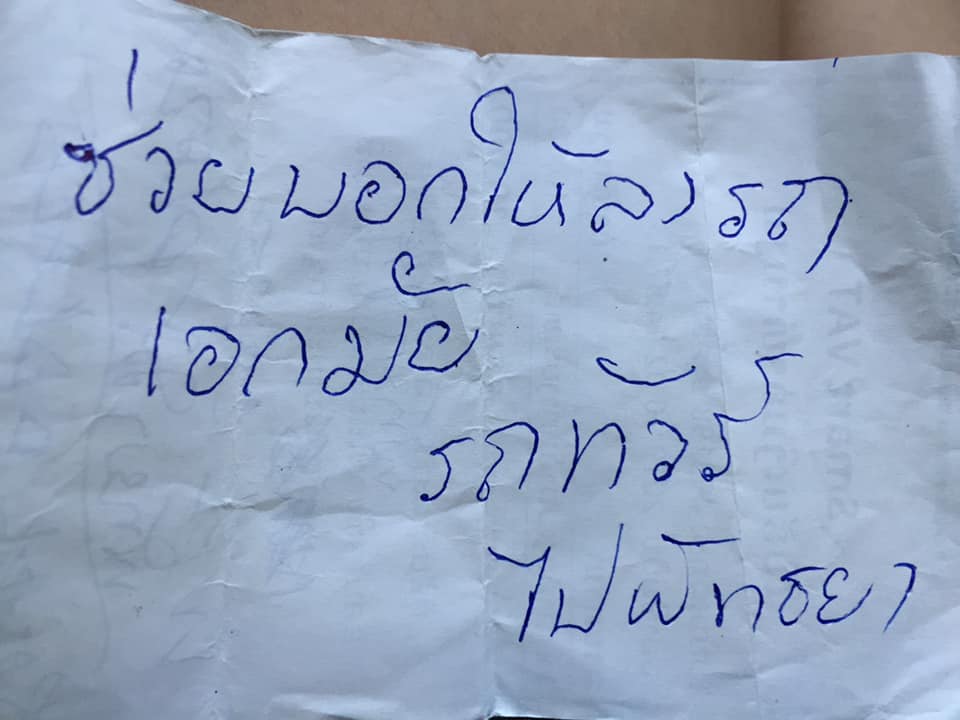 ช่วยบอกให้ลงรถ
เอกมัย
รถทัวร์
ไปพัทธยา